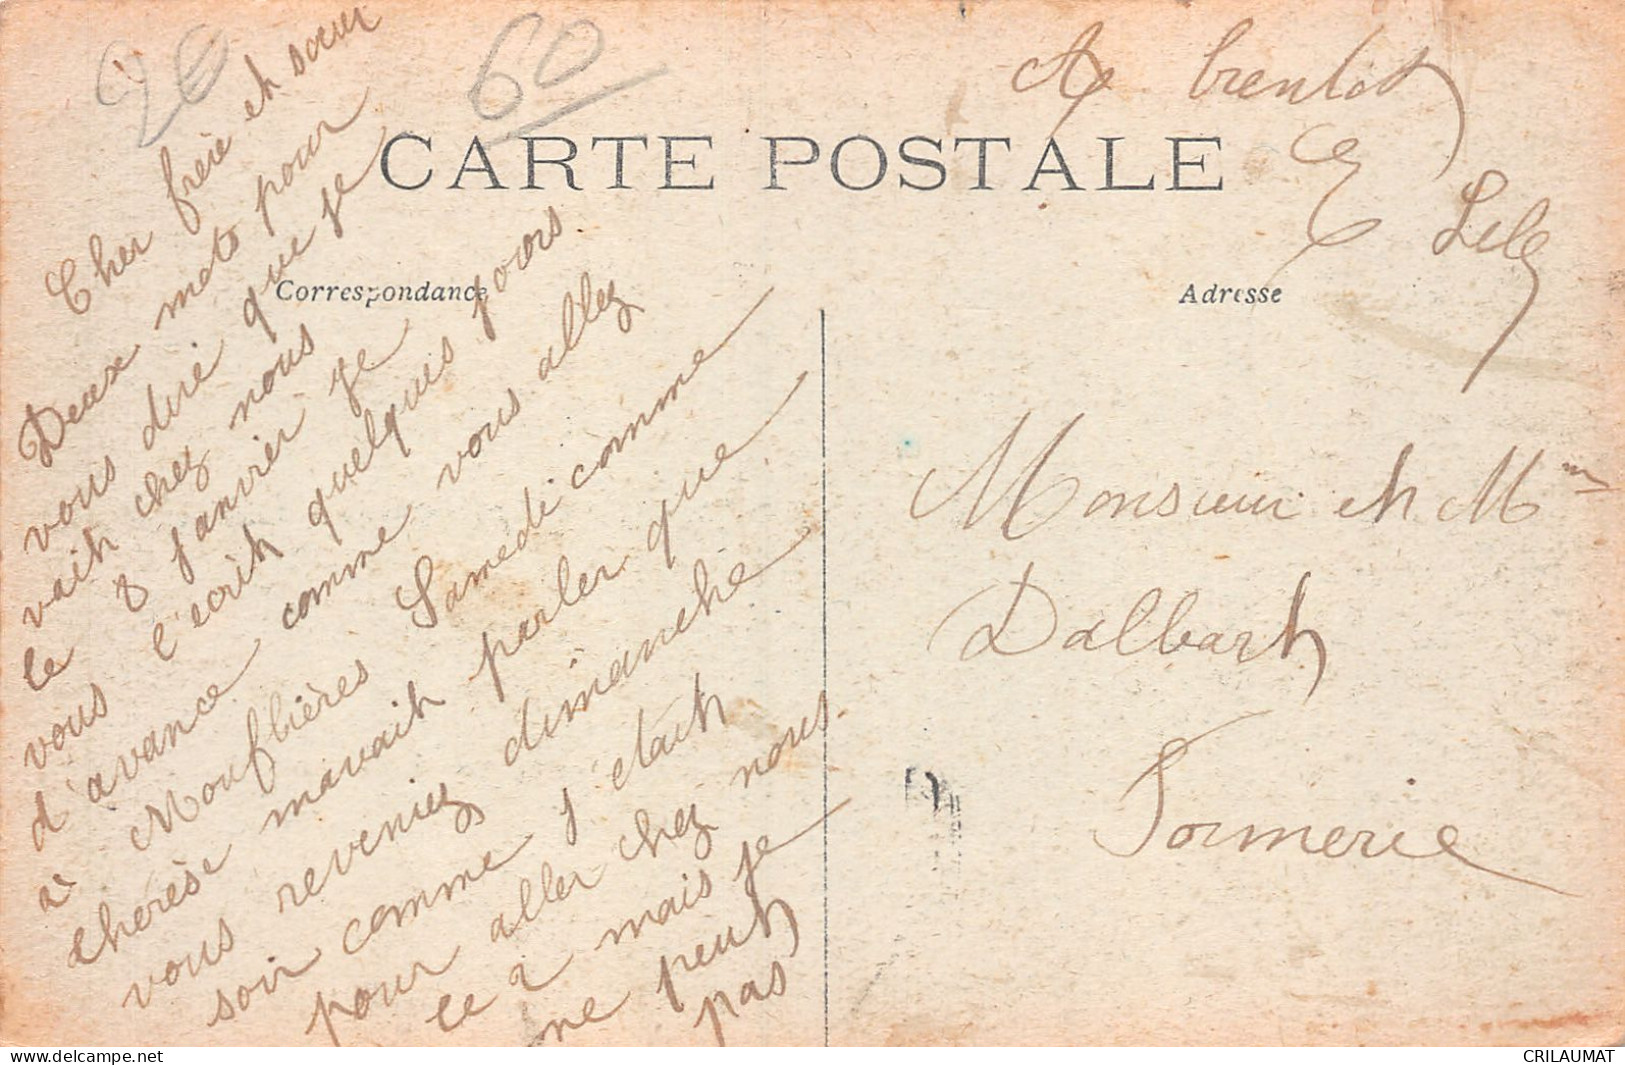 2€
60
CARTE POSTALE
Correspondance
Adresse
Cher frère et sœur
Deux mots pour
vous dire que je
vait chez nous
le 8 janvier je
vous l'ecrit quelques jours
d'avance comme vous allez
à Mouflières Samedi comme
thérèse mavait parler que
vous reveniez dimanche
soir comme j'etait
pour aller chez nous
le 2 mais je
ne peut
pas
A bientôt
E Lely
Monsieur et Mm
Dalbart
Formerie
CRILAUMAT